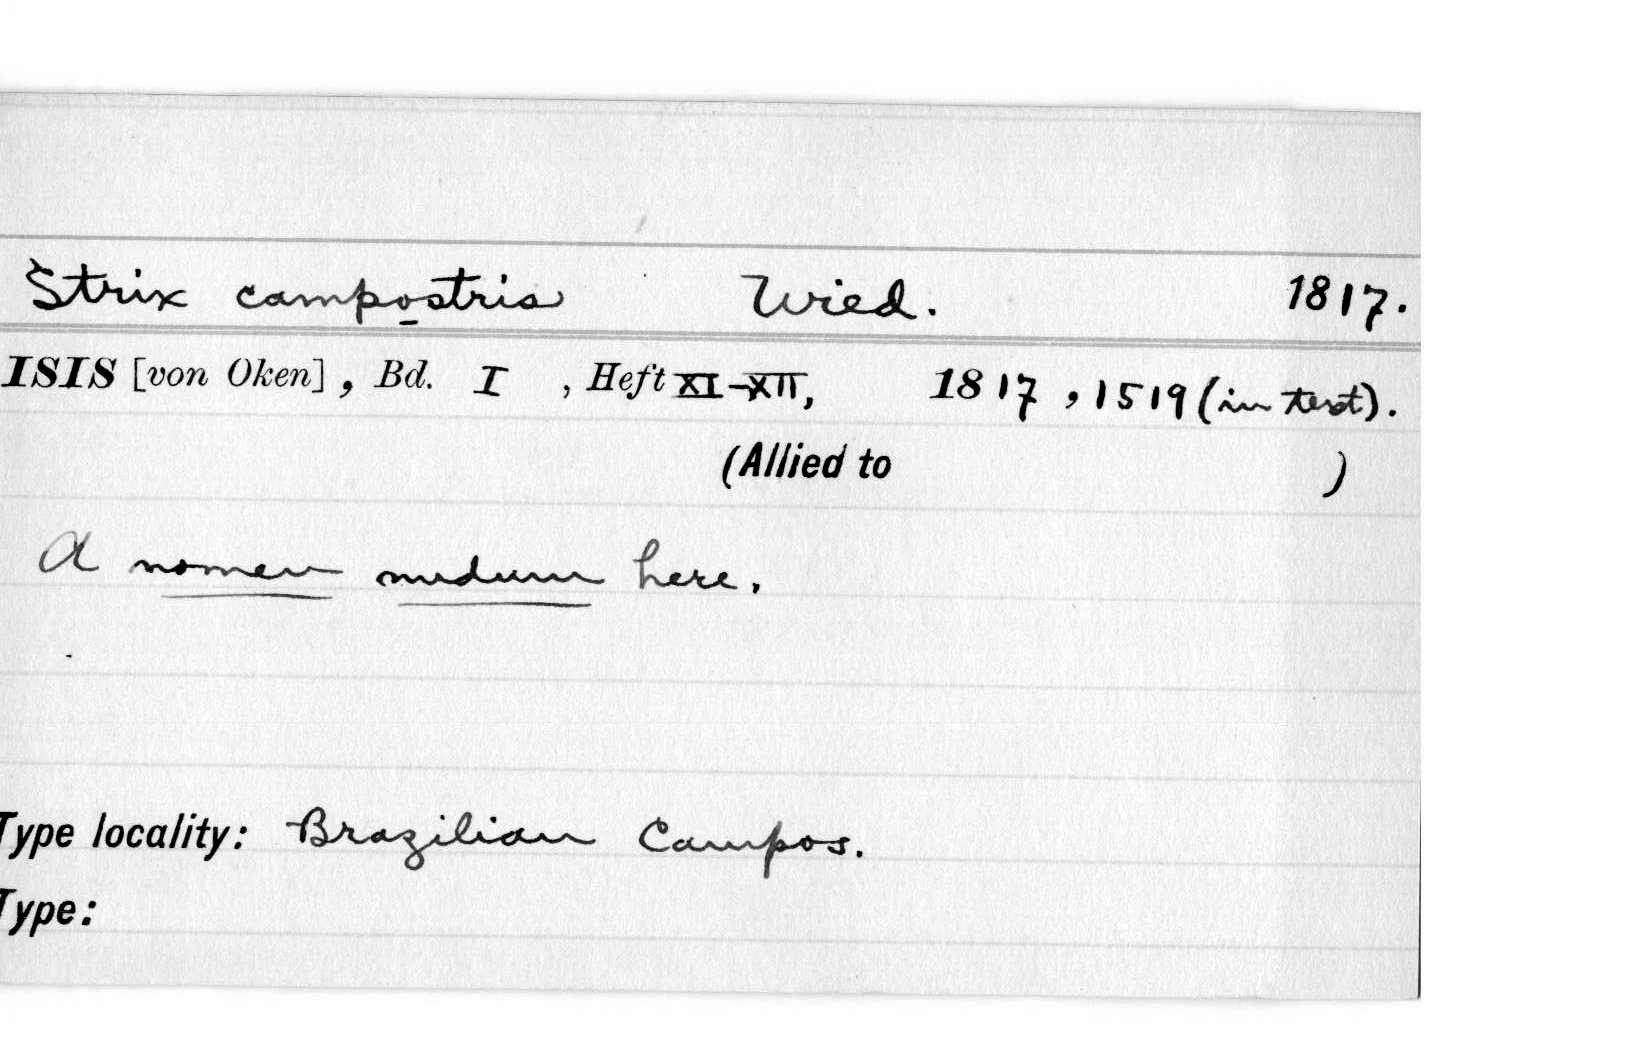 Strix campostris Wied. 1817.
ISIS [von Oken], Bd. I , Heft XI-XII, 1817, 1519 (in text).
(Allied to )
A nomen nudum here.
Type locality: Brazilian Campos.
Type: